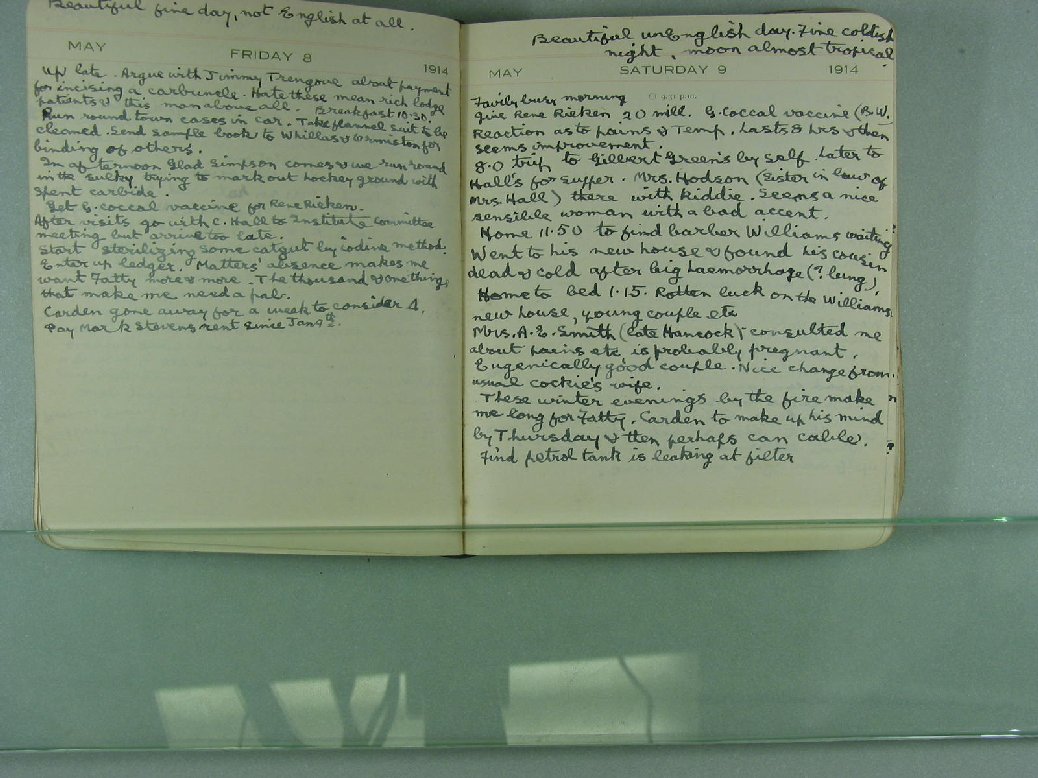 Beautiful fine day, not English at all.
MAY FRIDAY 8 1914
Up late. Argue with Jimmy Trengove about payment
for incising a carbuncle. Hate these mean rich lodge
patients & this man above all. Breakfast 10.30.
Run round town cases in car. Take flannel suit to be
cleaned. Send sample book to Whillas & Ormiston for
binding of others.
In afternoon Glad Simpson comes & we run round
in the sulky trying to mark out hockey ground with
spent carbide.
Get G. coccal vaccine for Rene Rieken.
After visits go with C. Hall to Institute Committee
meeting but arrive too late.
Start sterilizing some catgut by iodine method.
Enter up ledger. Matters' absence makes me
want Fatty more & more. The thousand & one things
that make me need a pal.
Carden gone away for a week to consider Δ.
Pay Mark Stevens rent since Jan 9th.
Beautiful unEnglish day. Fine coldish
night, moon almost tropical
MAY SATURDAY 9 1914
Fairly busy morning
give Rene Rieken 20 mill. G. coccal vaccine (B.W.
Reaction as to pains & Temp. Lasts 8 hrs & then
seems improvement.
8.0 trip to Gilbert Greens by self. Later to
Hall's for supper. Mrs. Hodson (Sister in law of
Mrs. Hall) there with kiddie. Seems a nice
sensible woman with a bad accent.
Home 11.50 to find barber Williams waiting
Went to his new house & found his cousin
dead & cold after big haemorrhage (? lung).
Home to bed 1.15. Rotten luck on the Williams
new house, young couple etc
Mrs. A. E. Smith (late Hancock) consulted me
about pains etc is probably pregnant.
Eugenically good couple. Nice change from
usual cockie's wife.
These winter evenings by the fire make
me long for Fatty. Carden to make up his mind
by Thursday & then perhaps can cable.
Find petrol tank is leaking at filter